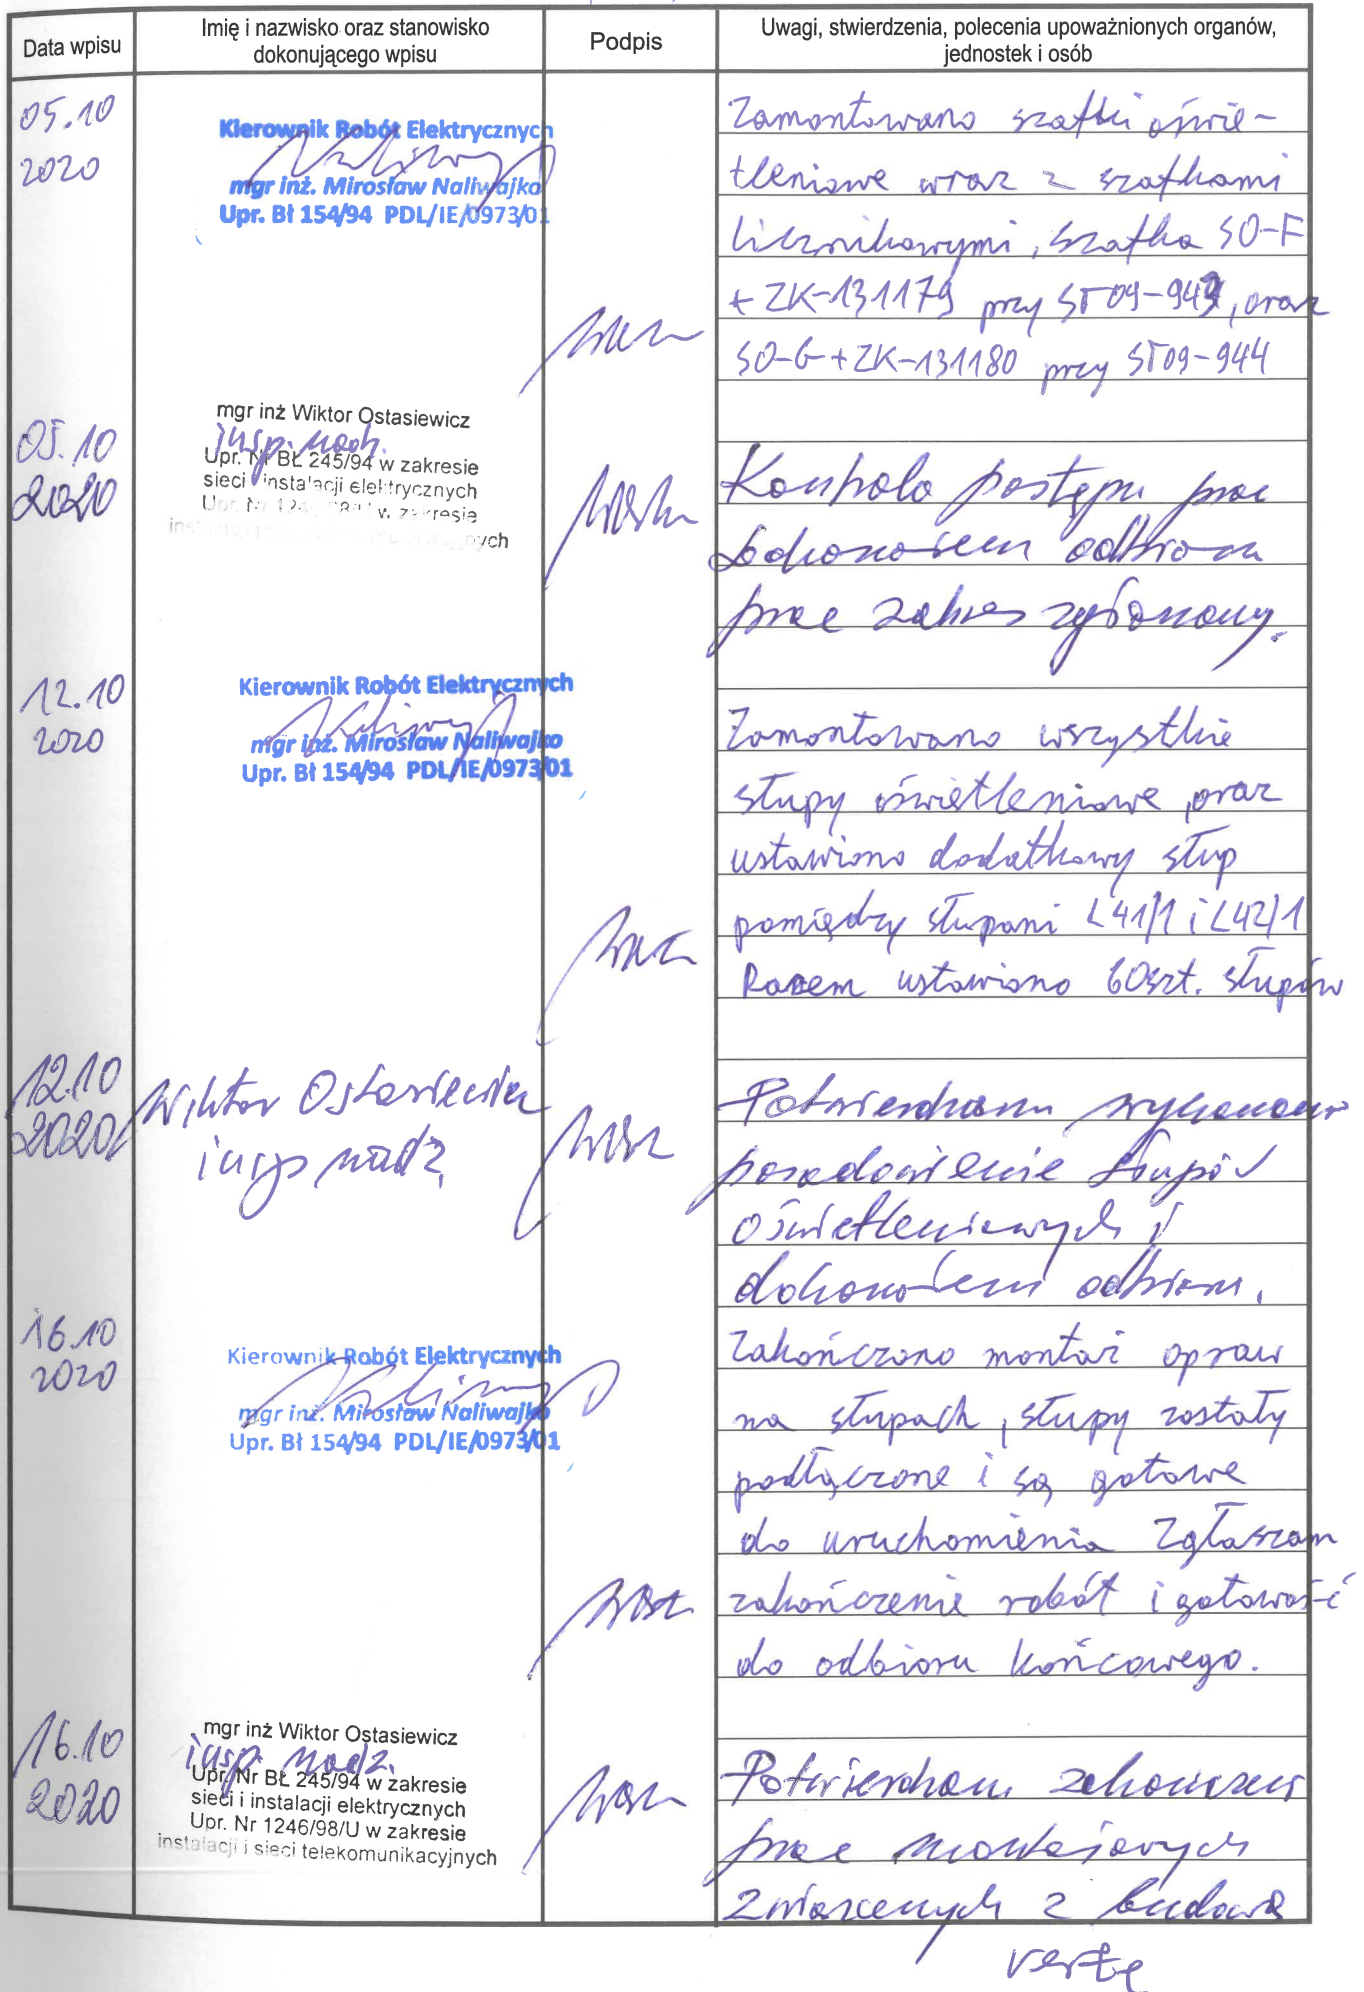 Data wpisu
Imię i nazwisko oraz stanowisko
dokonującego wpisu
Podpis
Uwagi, stwierdzenia, polecenia upoważnionych organów,
jednostek i osób
05.10
2020
Kierownik Robót Elektrycznych
mgr inż. Mirosław Naliwajko
Upr. Bł 154/94 PDL/IE/0973/01
Zamontowano szafki oświe-
tleniowe wraz z szafkami
licznikowymi, szafka SO-F
+ ZK-131179 przy ST09-943, oraz
SO-G + ZK-131180 przy ST09-944
05.10
2020
mgr inż Wiktor Ostasiewicz
insp. nadz.
Upr. Nr BŁ 245/94 w zakresie
sieci i instalacji elektrycznych
Upr. Nr 1246/98/U w zakresie
Kontrola postępu prac
Dokonałem odbioru
prac zakres zgłoszony.
12.10
2020
Kierownik Robót Elektrycznych
mgr inż. Mirosław Naliwajko
Upr. Bł 154/94 PDL/IE/0973/01
Zamontowano wszystkie
słupy oświetleniowe, oraz
ustawiono dodatkowy słup
pomiędzy słupami L41/1 i L42/1
Razem ustawiono 60szt. słupów
12.10
2020
Wiktor Ostasiewicz
insp nadz.
Potwierdzam wykonanie
posadowienie słupów
oświetleniowych i
dokonałem odbioru.
16.10
2020
Kierownik Robót Elektrycznych
mgr inż. Mirosław Naliwajko
Upr. Bł 154/94 PDL/IE/0973/01
Zakończono montaż opraw
na słupach, słupy zostały
podłączone i są gotowe
do uruchomienia Zgłaszam
zakończenie robót i gotowość
do odbioru końcowego.
16.10
2020
mgr inż Wiktor Ostasiewicz
insp. nadz.
Upr. Nr BŁ 245/94 w zakresie
sieci i instalacji elektrycznych
Upr. Nr 1246/98/U w zakresie
instalacji i sieci telekomunikacyjnych
Potwierdzam zakończenie
prac montażowych
związanych z budową
verte